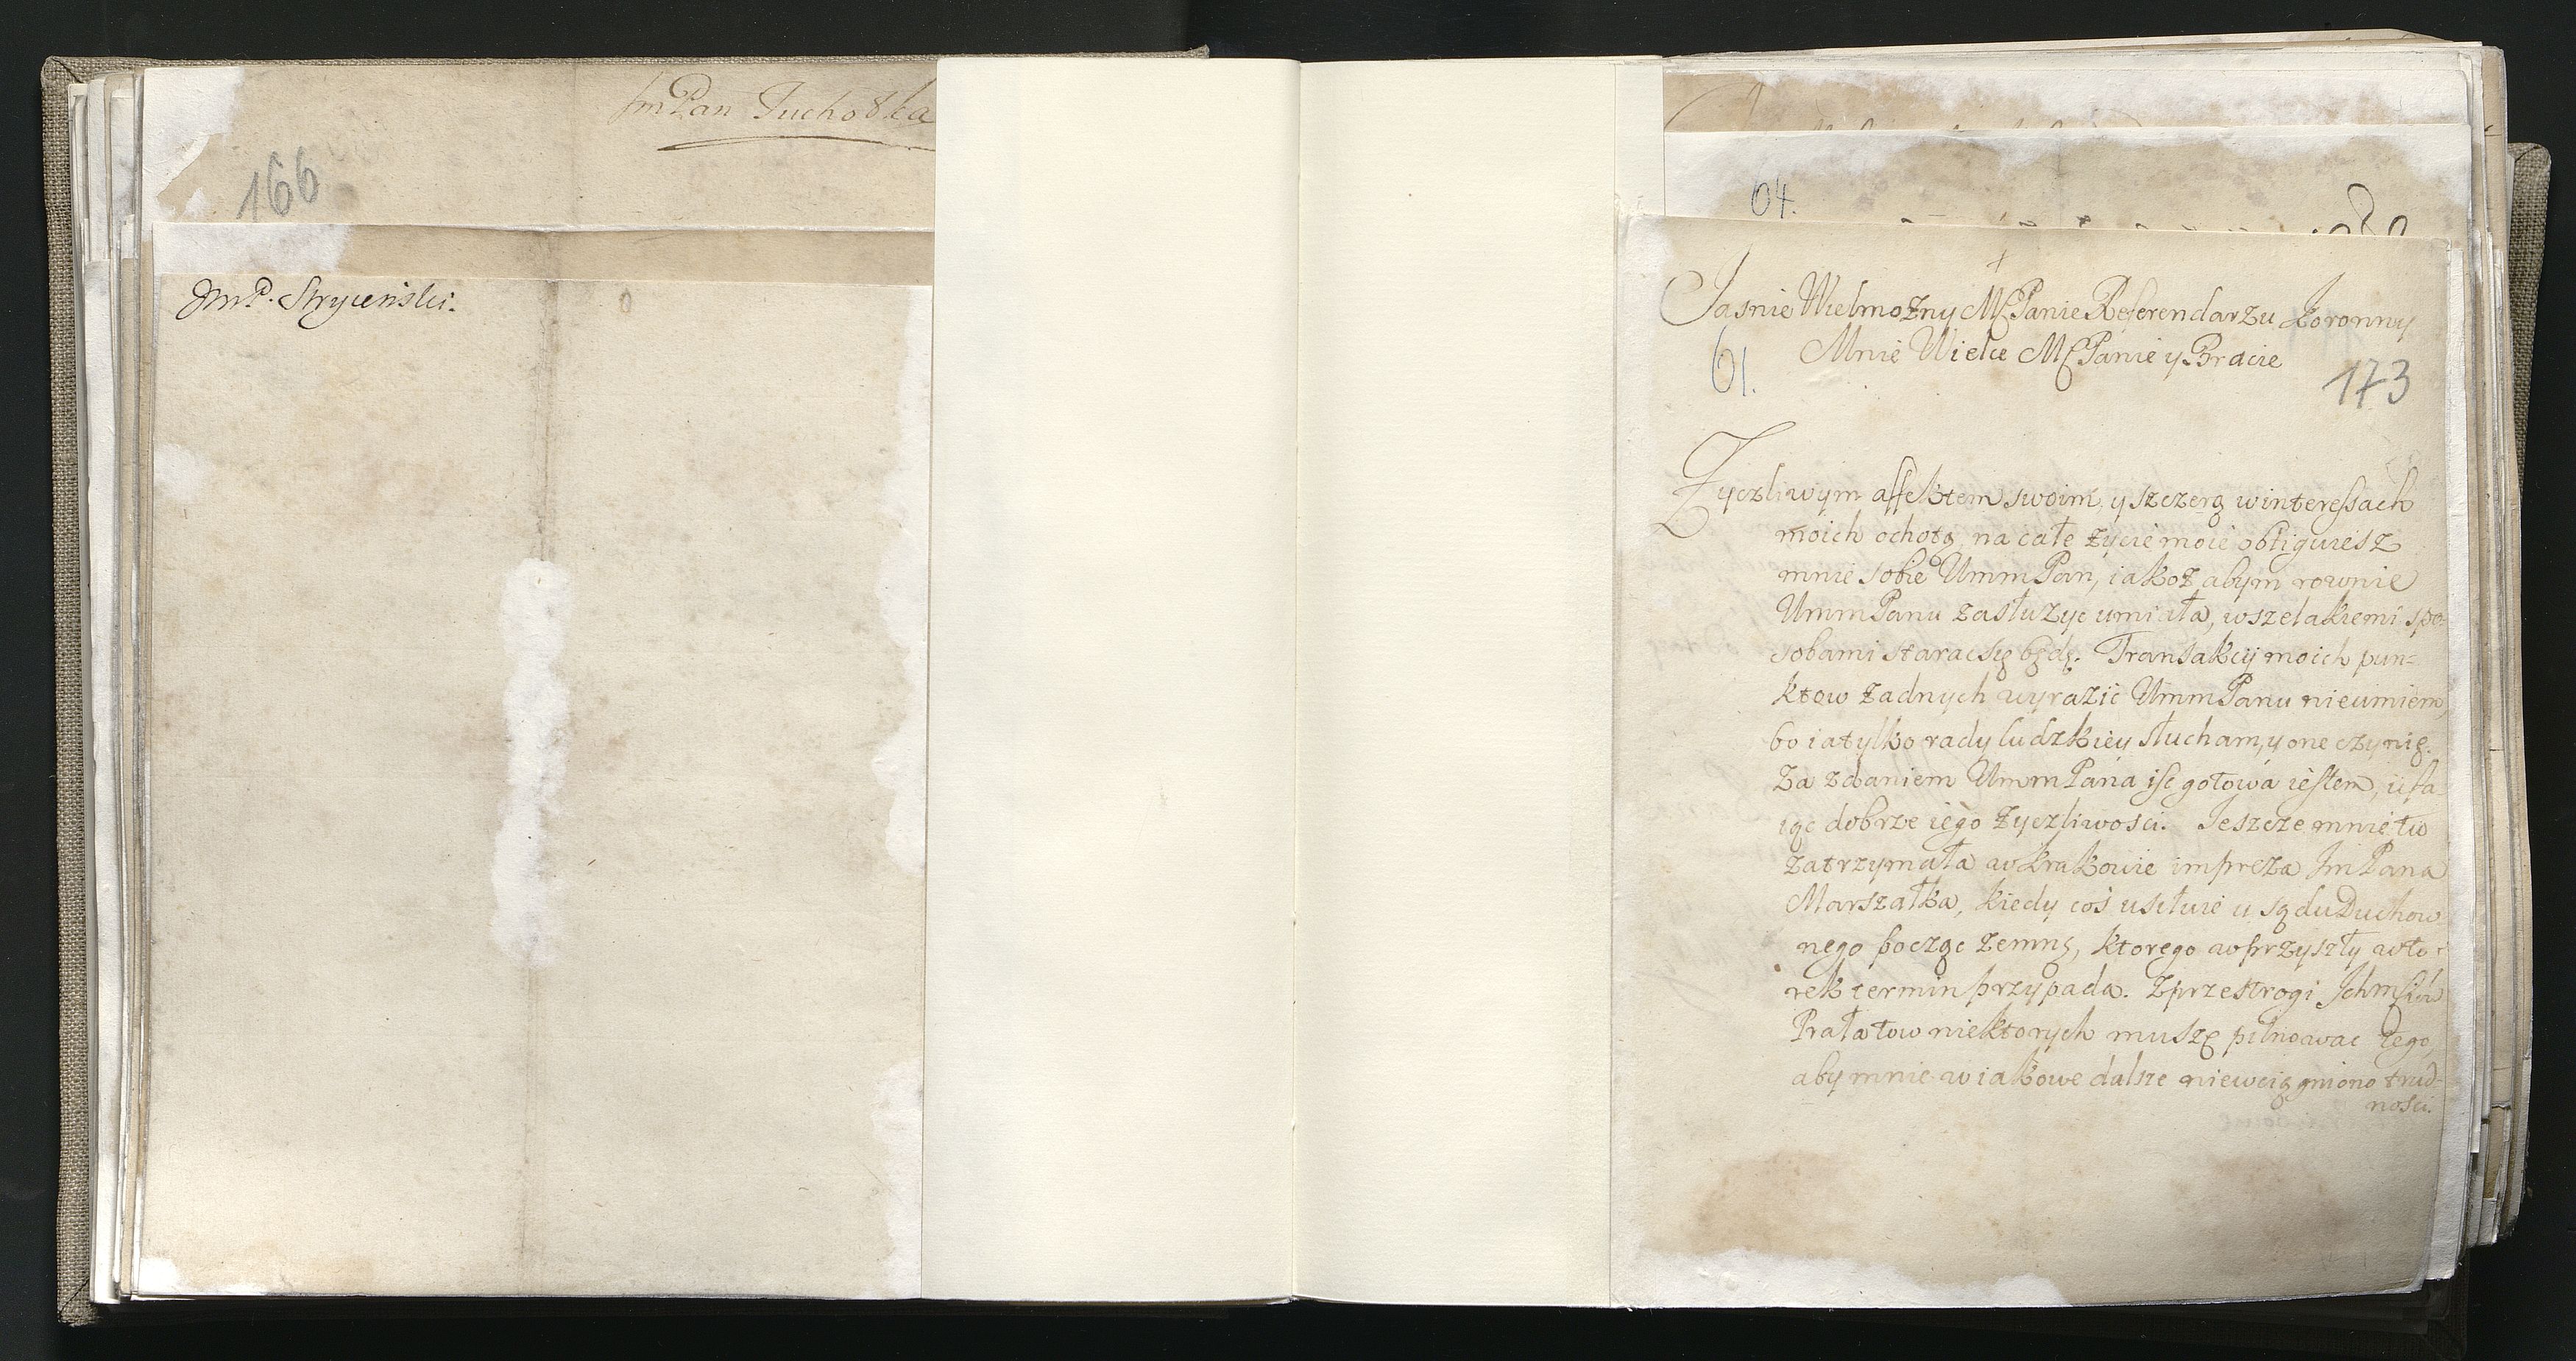 Jm Pan Tucholka
166
JmP. Stryienski.
64.
+
Jasnie Wielmożny Mſ Panie Referendarzu Koronny
Mnie Wielce Mſ Panie y Bracie
61.
173
Zyczliwym affektem swoim, y szczerą w interessach
moich ochotą, na całe życie moie obliguiesz
mnie sobie UmmPan, iakoż abym rownie
UmmPanu zasłużyc umiała, wszelakiemi spo-
sobami starac się będę. Transakcij moich pun=
ktow żadnych wyrazić UmmPanu nieumiem,
bo ia tylko rady ludzkiey słucham, y one czynię.
Za zdaniem UmmPana isc gotowa iestem, ufa-
iąc dobrze iego życzliwosci. Jeszcze mnie tu
zatrzymała w Krakowie impreza Jm Pana
Marszałka, kiedy coś usiłuie u sądu Duchow
nego począc zemną, ktorego w przyszły wto-
rek termin przypada. Z przestrogi Jchmściow
Prałatow niektorych muszę pilnowac tego,
aby mnie w iakowe dalsze niewciągniono trud-
nosci.